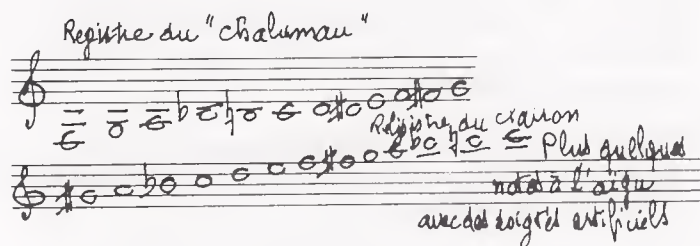 Registre du "Chalumau"
Registre du clairon
Plus quelques
notes à l'aigu
avec des doigtés artificiels